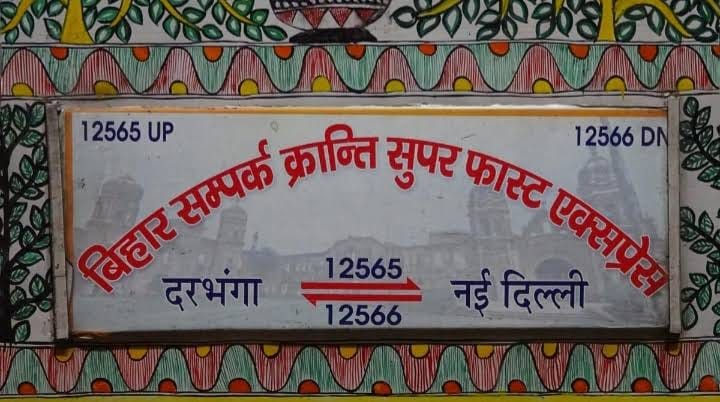 12565 UP 12566 DN
बिहार सम्पर्क क्रान्ति सुपर फास्ट एक्सप्रेस
12565
दरभंगा नई दिल्ली
12566